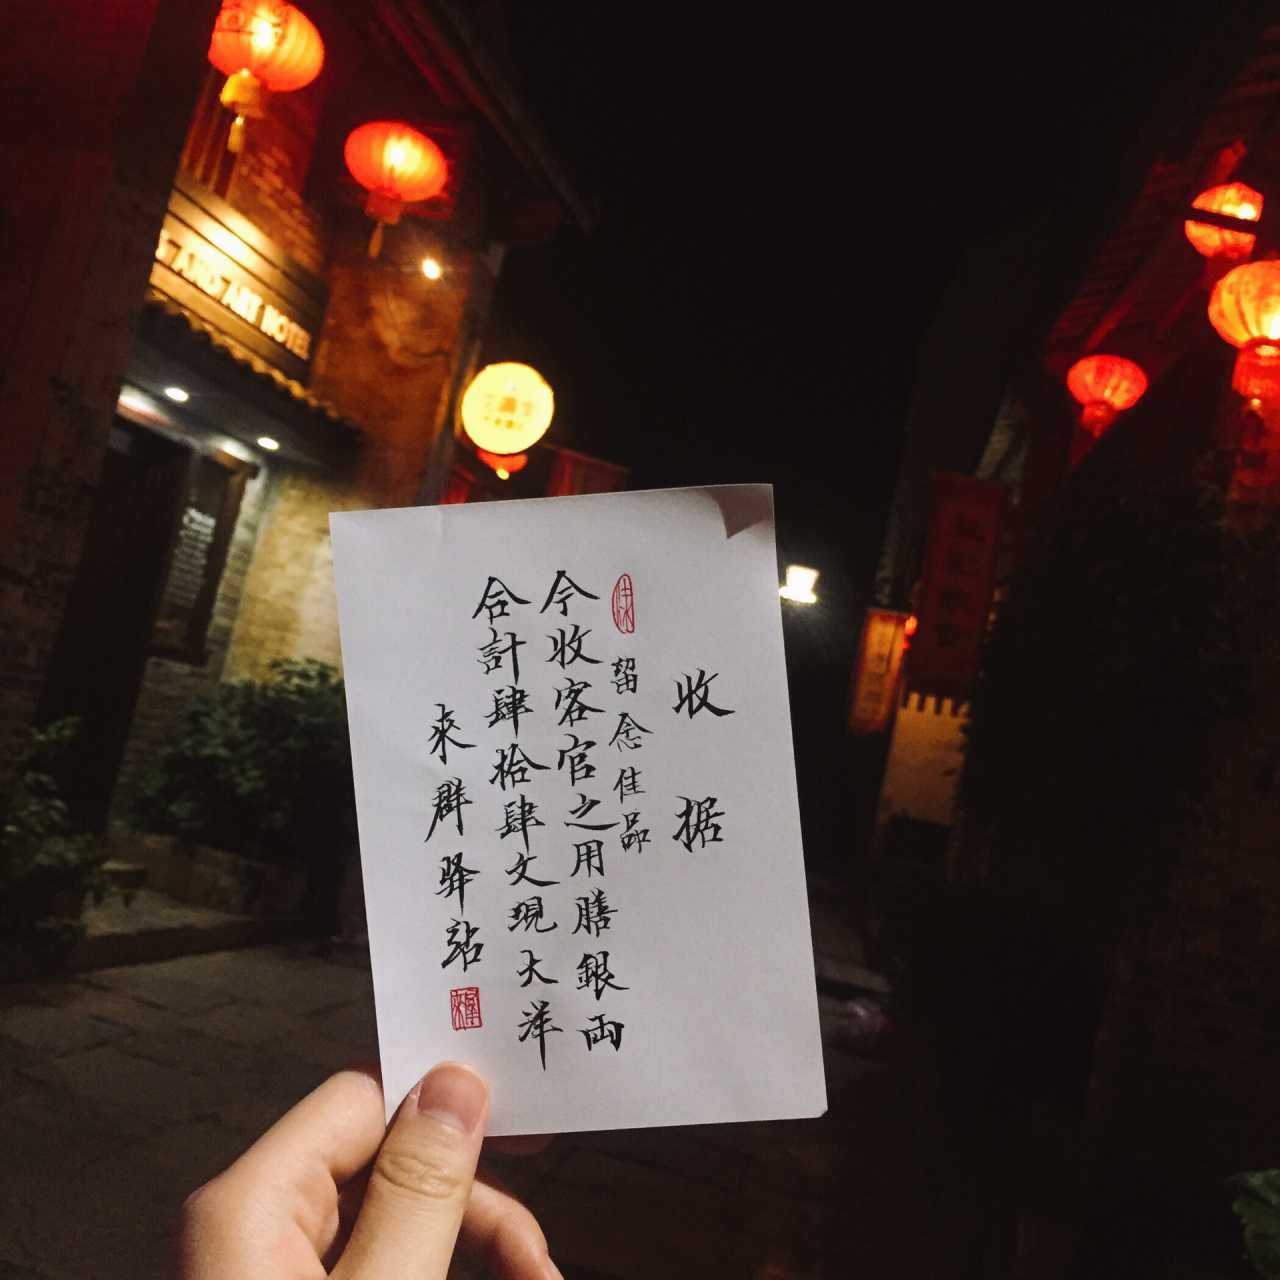 收据
留念佳品
今收客官之用膳銀両
合計肆拾肆文現大洋
來群驿站
AND ART HOTEL